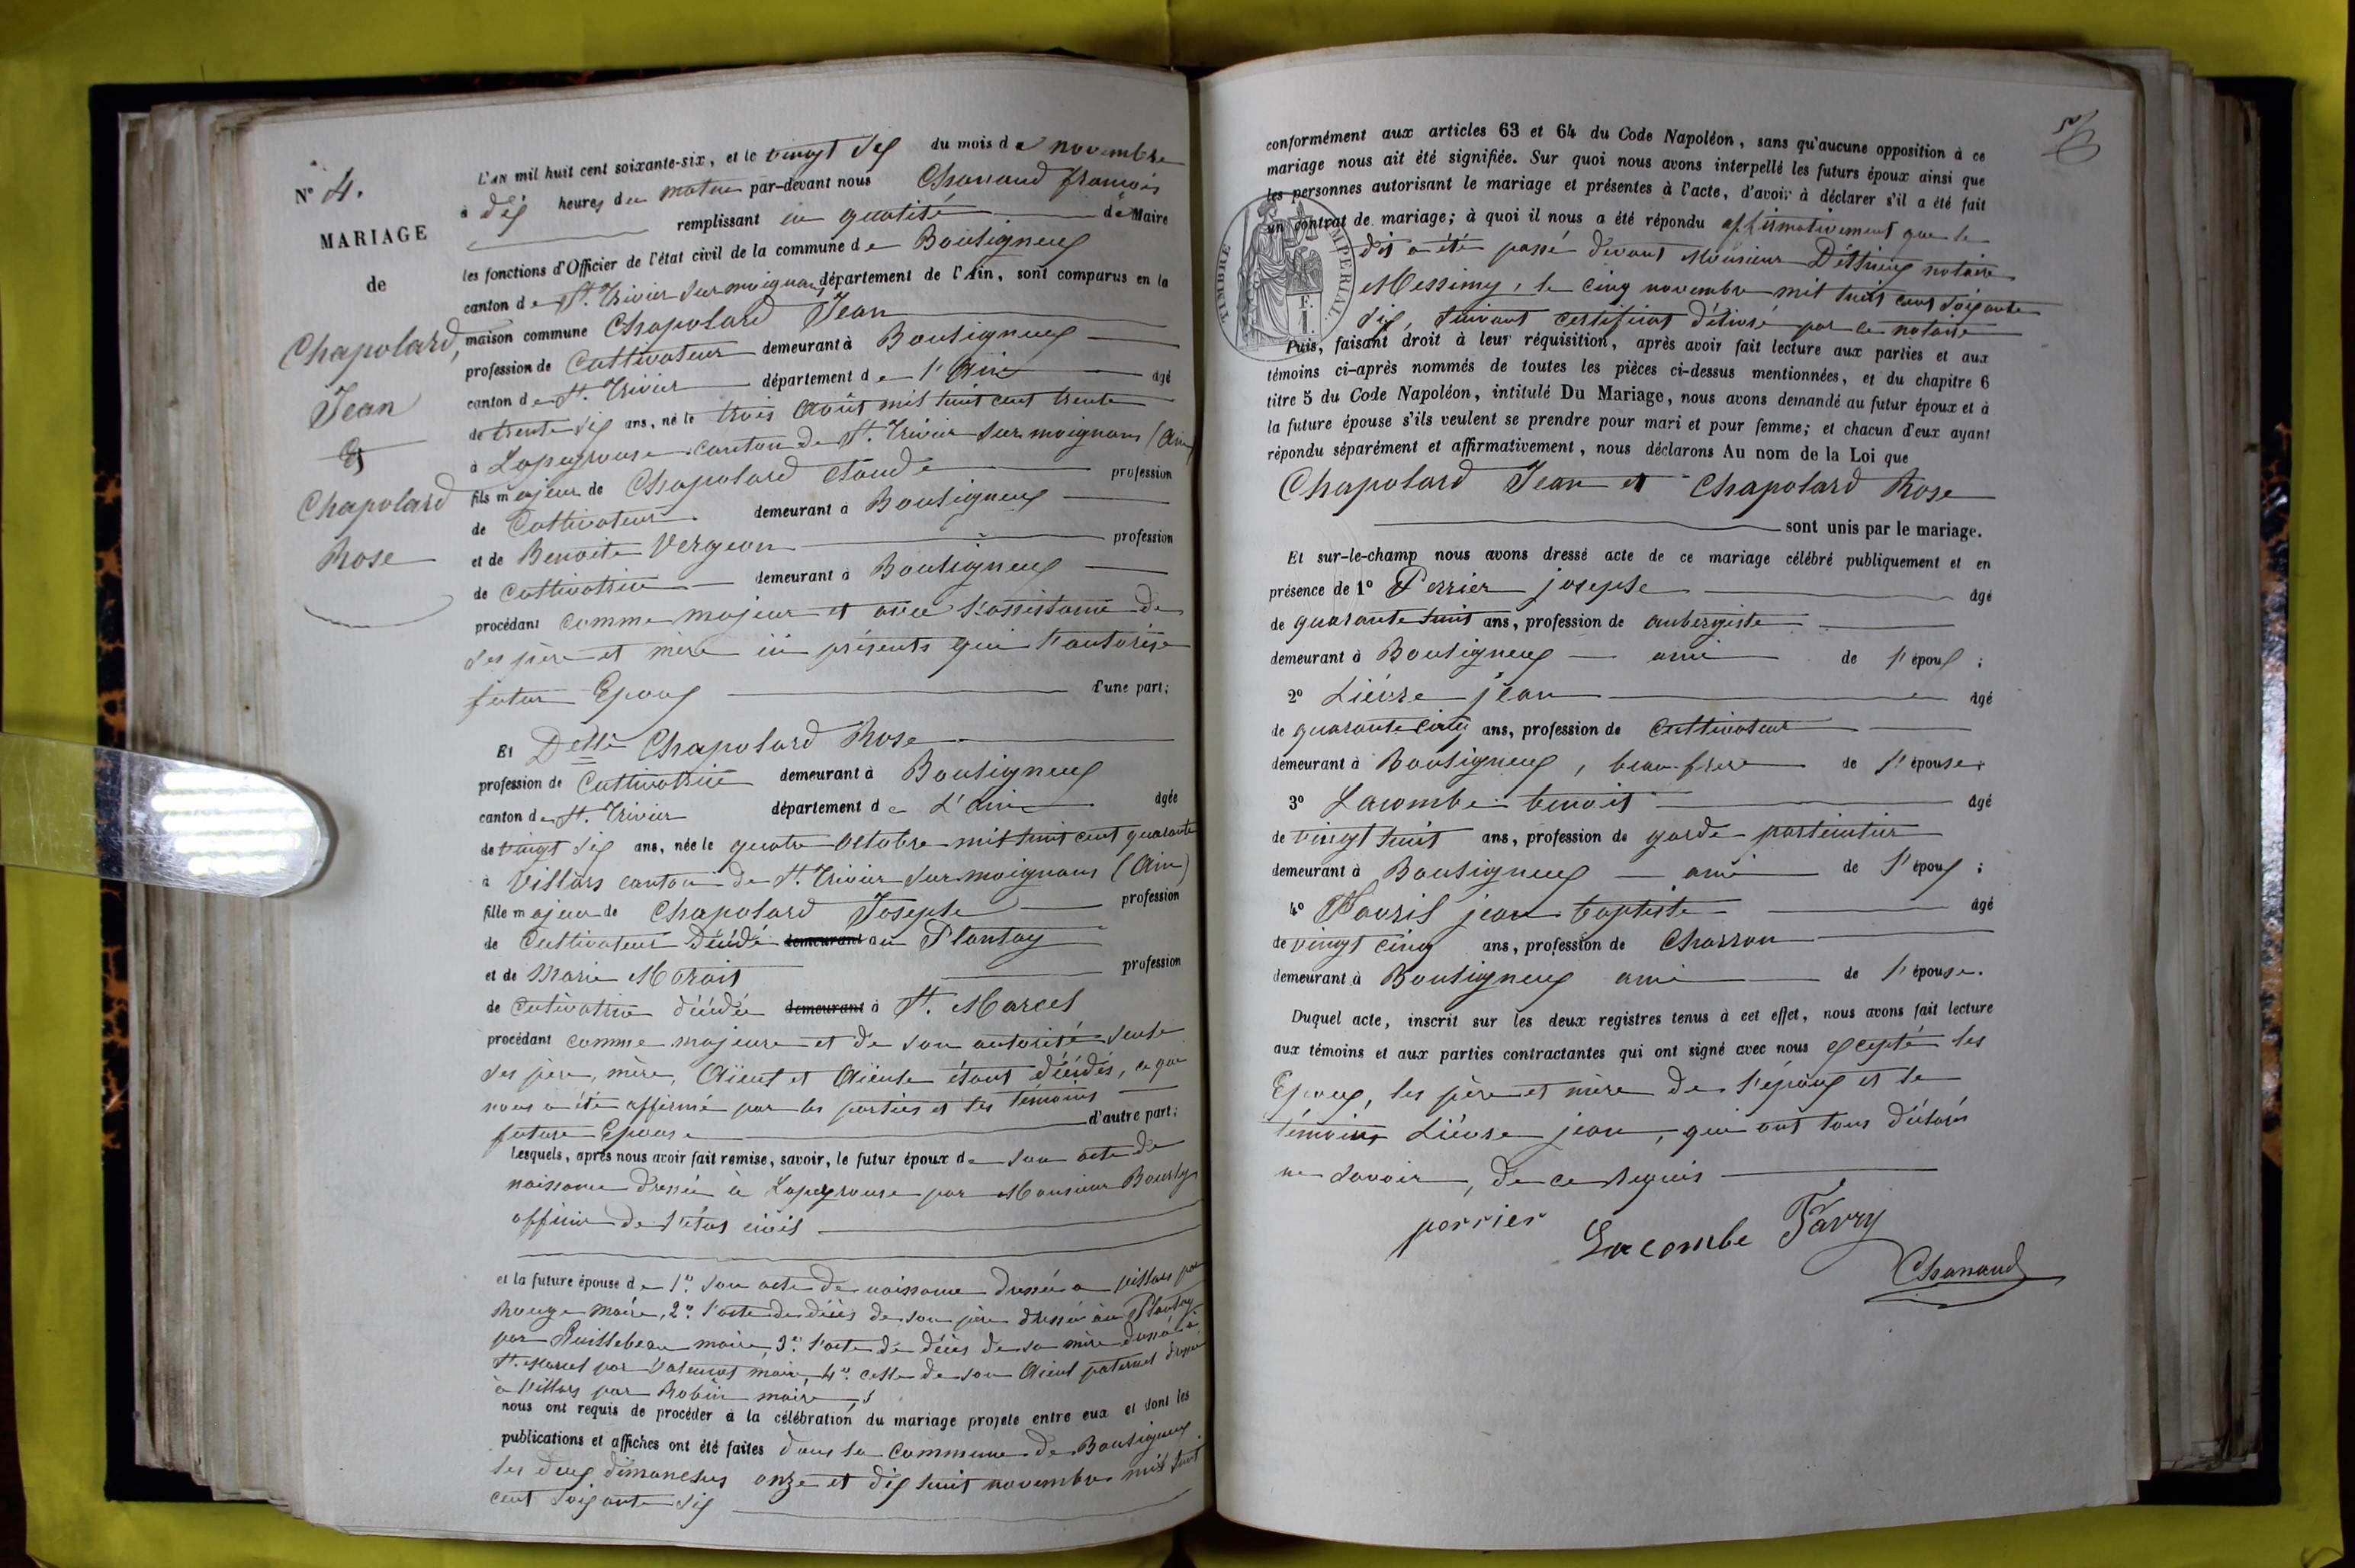 N° 4.
MARIAGE
de
Chapolard,
Jean
Et
Chapolard
Rose
L'AN mil huit cent soixante-six, et le vingt six du mois de novembre
à dix heures du matin par-devant nous Chanaud françois
remplissant en qualité de Maire
les fonctions d'Officier de l'état civil de la commune de Bouligneux
canton de St. Trivier sur moignans, département de l'Ain, sont comparus en la
maison commune Chapolard Jean
profession de Cultivateur demeurant à Bouligneux
canton de St. Trivier département de l'Ain âgé
de trente six ans, né le trois Août mil huit cent trente
à Lapeyrouse canton de St. Trivier sur moignans (Ain)
fils majeur de Chapolard Claude profession
de Cultivateur demeurant à Bouligneux
et de Benoite Vergeon profession
de Cultivatrice demeurant à Bouligneux
procédant comme majeur et avec l'assistance de
ses père et mère ici présents qui l'autorise
futur Epoux d'une part;
Et Delle Chapolard Rose
profession de Cultivatrice demeurant à Bouligneux
canton de St. Trivier département de L'ain âgée
de vingt six ans, née le quatre octobre mil huit cent quarante
à Villars canton de St. Trivier sur moignans (Ain)
fille majeur de Chapolard Joseph profession
de Cultivateur décédé demeurant au Plantay
et de Marie Morait profession
de Cultivatrice décédée demeurant à St. Marcel
procédant comme majeure et de son autorité seule
ses père, mère, Aïeul et Aïeule étant décédés, ce que
nous a été affirmé par les parties et les témoins
future Epouse d'autre part;
Lesquels, après nous avoir fait remise, savoir, le futur époux de son acte de
naissance dressé à Lapeyrouse par Monsieur Bourly
officier de l'état civil
et la future épouse de 1° son acte de naissance dressé à Villars par
Rouge maire, 2° l'acte de décès de son père dressé au Plantay
par Puillebeau maire, 3° l'acte de décès de sa mère dressé à
St. Marcel par maire, 4° celle de son Aïeul paternel dressé
à Villars par Robin maire,
nous ont requis de procéder à la célébration du mariage projeté entre eux et dont les
publications et affiches ont été faites dans la Commune de Bouligneux
les deux dimanches onze et dix huit novembre mil huit
cent soixante six
conformément aux articles 63 et 64 du Code Napoléon, sans qu'aucune opposition à ce
mariage nous ait été signifiée. Sur quoi nous avons interpellé les futurs époux ainsi que
les personnes autorisant le mariage et présentes à l'acte, d'avoir à déclarer s'il a été fait
un contrat de mariage; à quoi il nous a été répondu affirmativement que le
dit a été passé devant Monsieur Déthieux notaire
Messimy, le cinq novembre mil huit cent soixante
six, suivant certificat délivré par ce notaire
TIMBRE IMPERIAL.
Puis, faisant droit à leur réquisition, après avoir fait lecture aux parties et aux
témoins ci-après nommés de toutes les pièces ci-dessus mentionnées, et du chapitre 6
titre 5 du Code Napoléon, intitulé Du Mariage, nous avons demandé au futur époux et à
la future épouse s'ils veulent se prendre pour mari et pour femme; et chacun d'eux ayant
répondu séparément et affirmativement, nous déclarons Au nom de la Loi que
Chapolard Jean et Chapolard Rose
sont unis par le mariage.
Et sur-le-champ nous avons dressé acte de ce mariage célébré publiquement et en
présence de 1° Perrier joseph âgé
de quarante huit ans, profession de aubergiste
demeurant à Bouligneux ami de l'époux;
2° Lièvre jean âgé
de quarante cinq ans, profession de Cultivateur
demeurant à Bouligneux, beau-frere de l'épouse
3° Lacombe benoit âgé
de vingt huit ans, profession de garde particulier
demeurant à Bouligneux ami de l'époux;
4° jean baptiste âgé
de vingt cinq ans, profession de Charron
demeurant à Bouligneux ami de l'épouse.
Duquel acte, inscrit sur les deux registres tenus à cet effet, nous avons fait lecture
aux témoins et aux parties contractantes qui ont signé avec nous excepté les
Epoux, les père et mère de l'époux et le
témoins Lièvre jean, qui ont tous déclarés
ne savoir, de ce requis
perrier Lacombe Favry
Chanaud